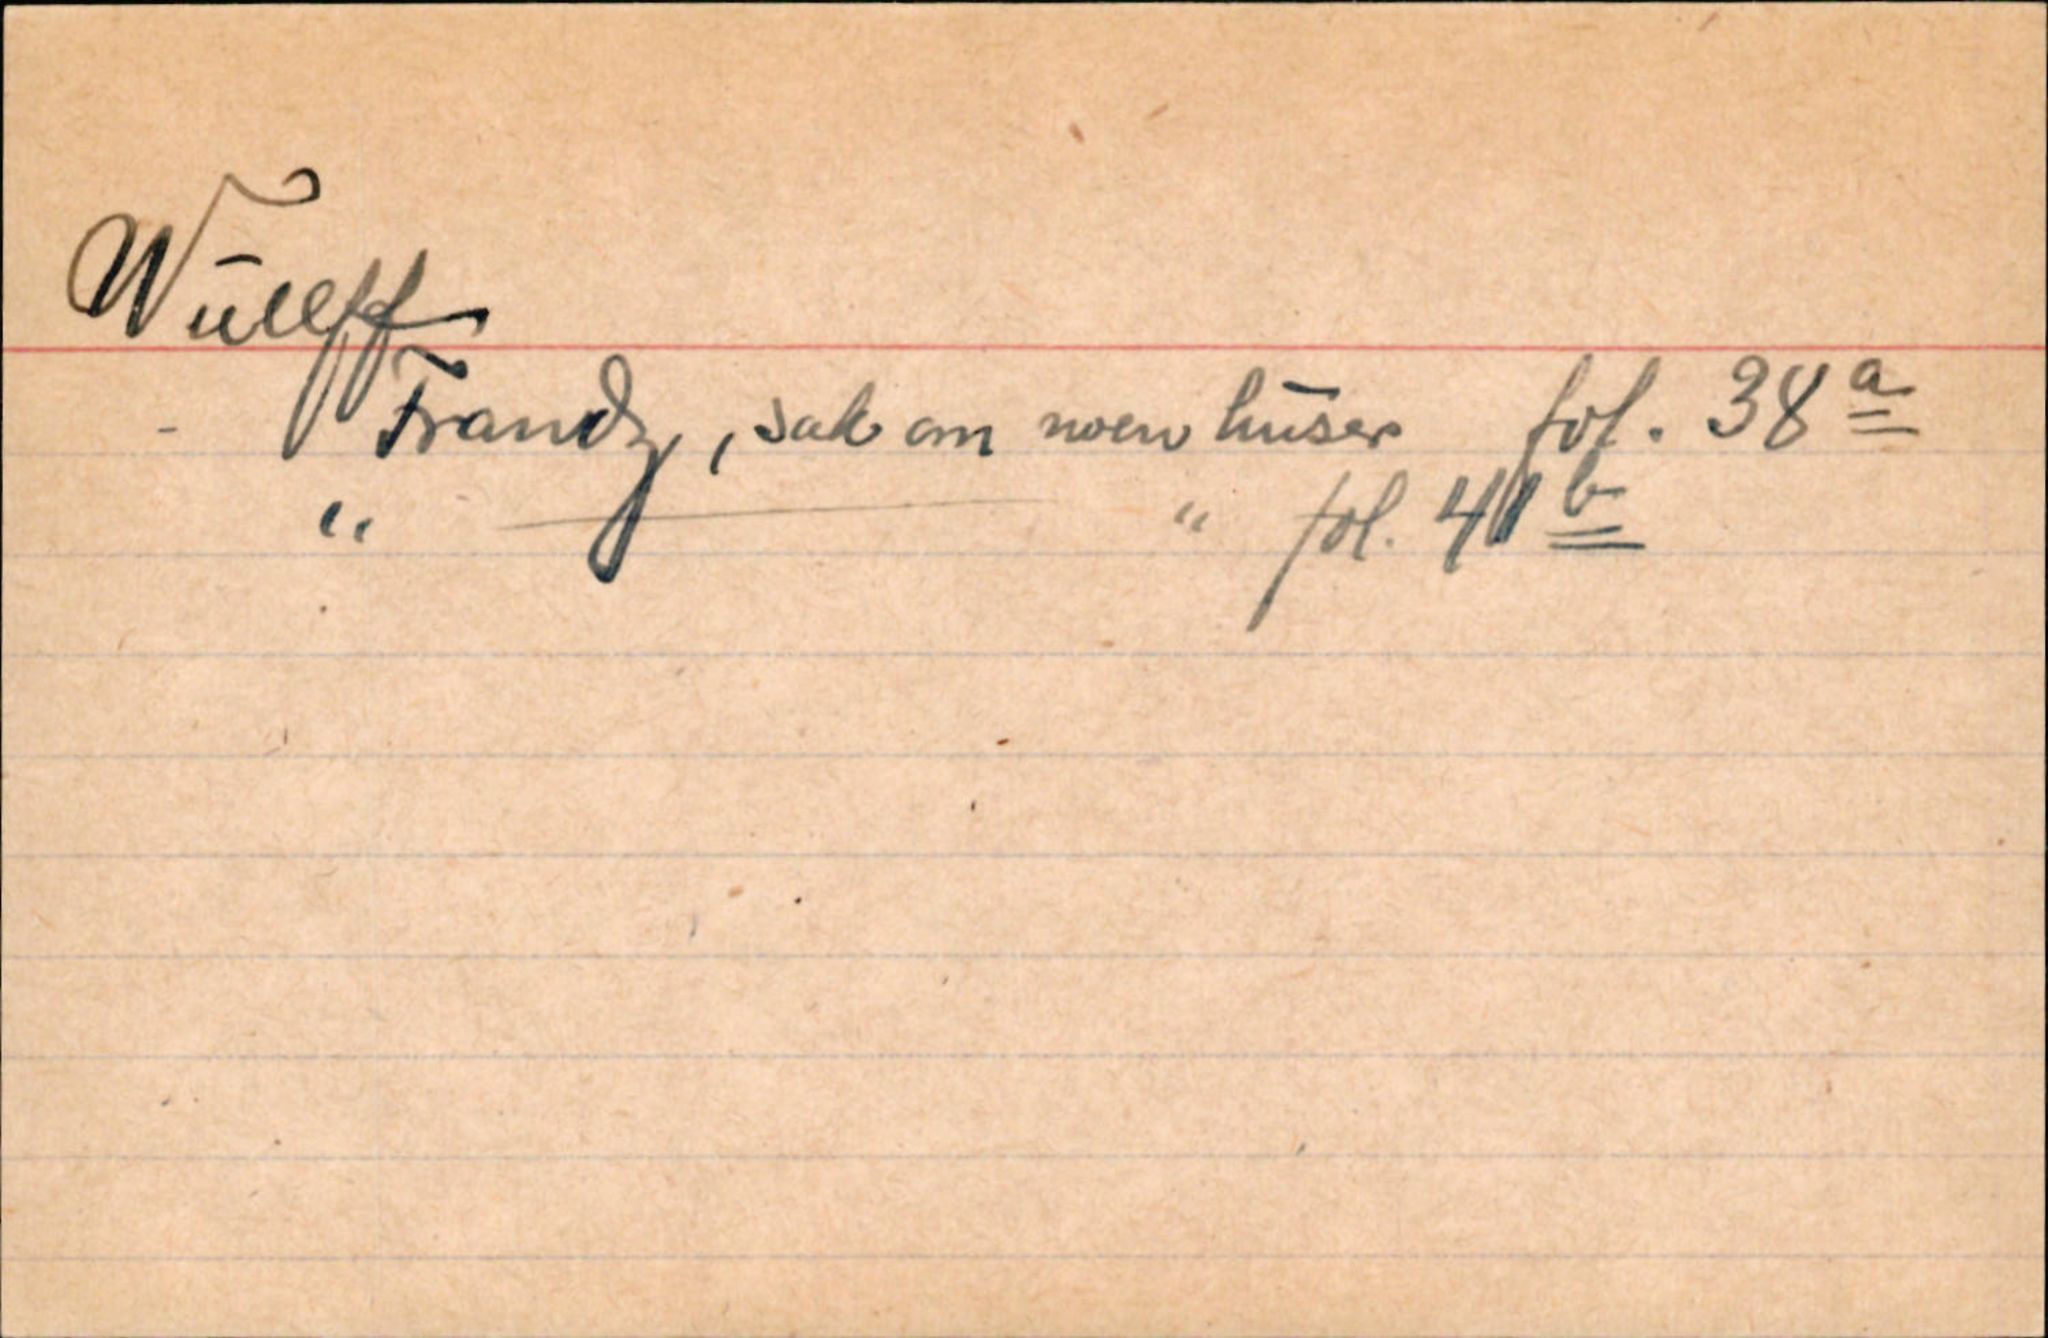 Wullff
- Frandz, sak om noen huser fol. 38 a
" — " fol. 41 b